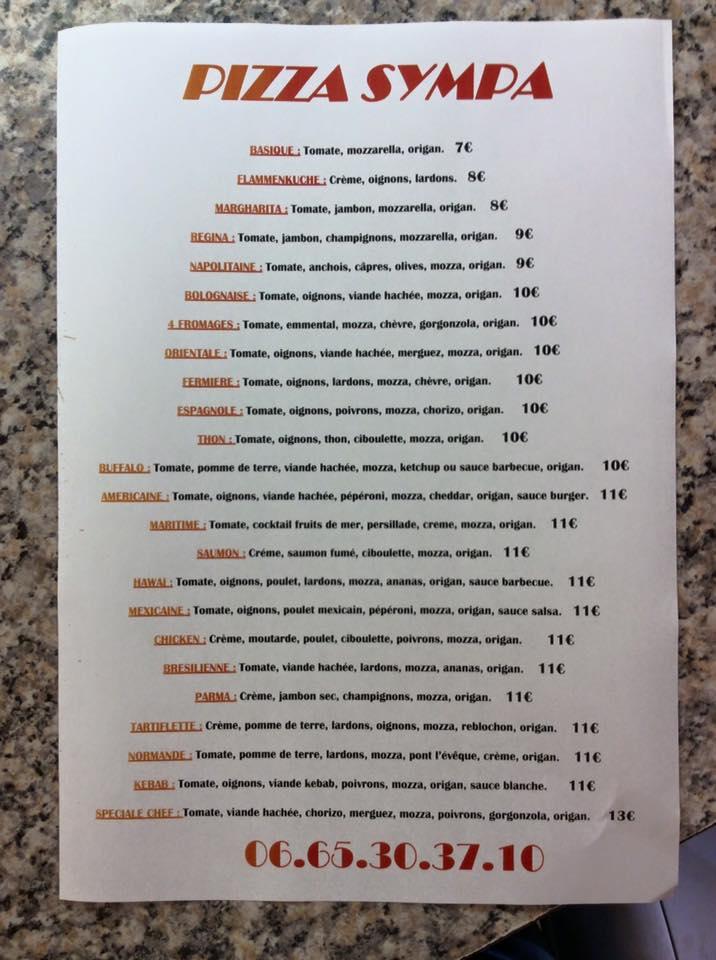 PIZZA SYMPA
BASIQUE : Tomate, mozzarella, origan. 7€
FLAMMENKUCHE : Crème, oignons, lardons. 8€
MARGHARITA : Tomate, jambon, mozzarella, origan. 8€
REGINA : Tomate, jambon, champignons, mozzarella, origan. 9€
NAPOLITAINE : Tomate, anchois, câpres, olives, mozza, origan. 9€
BOLOGNAISE : Tomate, oignons, viande hachée, mozza, origan. 10€
4 FROMAGES : Tomate, emmental, mozza, chèvre, gorgonzola, origan. 10€
ORIENTALE : Tomate, oignons, viande hachée, merguez, mozza, origan. 10€
FERMIERE : Tomate, oignons, lardons, mozza, chèvre, origan. 10€
ESPAGNOLE : Tomate, oignons, poivrons, mozza, chorizo, origan. 10€
THON : Tomate, oignons, thon, ciboulette, mozza, origan. 10€
BUFFALO : Tomate, pomme de terre, viande hachée, mozza, ketchup ou sauce barbecue, origan. 10€
AMERICAINE : Tomate, oignons, viande hachée, pépéroni, mozza, cheddar, origan, sauce burger. 11€
MARITIME : Tomate, cocktail fruits de mer, persillade, creme, mozza, origan. 11€
SAUMON : Créme, saumon fumé, ciboulette, mozza, origan. 11€
HAWAI : Tomate, oignons, poulet, lardons, mozza, ananas, origan, sauce barbecue. 11€
MEXICAINE : Tomate, oignons, poulet mexicain, pépéroni, mozza, origan, sauce salsa. 11€
CHICKEN : Crème, moutarde, poulet, ciboulette, poivrons, mozza, origan. 11€
BRESILIENNE : Tomate, viande hachée, lardons, mozza, ananas, origan. 11€
PARMA : Crème, jambon sec, champignons, mozza, origan. 11€
TARTIFLETTE : Crème, pomme de terre, lardons, oignons, mozza, reblochon, origan. 11€
NORMANDE : Tomate, pomme de terre, lardons, mozza, pont l'évêque, crème, origan. 11€
KEBAB : Tomate, oignons, viande kebab, poivrons, mozza, origan, sauce blanche. 11€
SPECIALE CHEF : Tomate, viande hachée, chorizo, merguez, mozza, poivrons, gorgonzola, origan. 13€
06.65.30.37.10